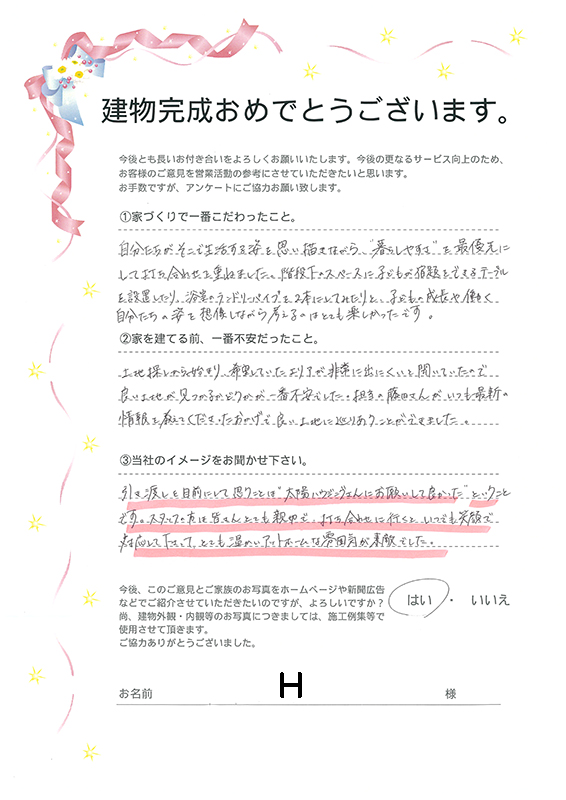 建物完成おめでとうございます。
今後とも長いお付き合いをよろしくお願いいたします。今後の更なるサービス向上のため、
お客様のご意見を営業活動の参考にさせていただきたいと思います。
お手数ですが、アンケートにご協力お願い致します。
①家づくりで一番こだわったこと。
自分たちがそこで生活する姿を思い描きながら、"暮らしやすさ"を最優先に
して打ち合わせを重ねました。階段下のスペースに子どもが宿題をできるテーブル
を設置したり、浴室のランドリーパイプを2本にしてみたりと、子どもの成長や働く
自分たちの姿を想像しながら考えるのはとても楽しかったです。
②家を建てる前、一番不安だったこと。
土地探しから始まり、希望していたエリアが非常に出にくいと聞いていたので
良い土地が見つかるかどうかが一番不安でした。担当の藤田さんがいつも最新の
情報を教えてくださったおかげで良い土地に巡りあうことができました。
③当社のイメージをお聞かせ下さい。
引き渡しを目前にして思うことは"太陽ハウジングさんにお願いして良かった"ということ
です。スタッフの方は皆さんとても親切で、打ち合わせに行くといつでも笑顔で
対応して下さって、とても温かいアットホームな雰囲気が素敵でした。
今後、このご意見とご家族のお写真をホームページや新聞広告
などでご紹介させていただきたいのですが、よろしいですか？
尚、建物外観・内観等のお写真につきましては、施工例集等で
使用させて頂きます。
ご協力ありがとうございました。
はい ・ いいえ
お名前 H 様